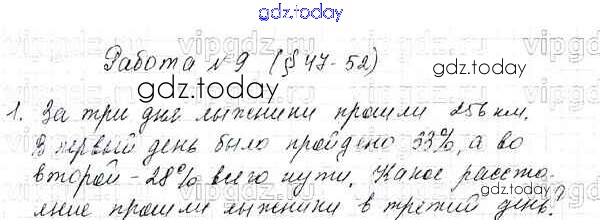 gdz.today
Работа №9 (§ 47-52)
gdz.today
1. За три дня лыжники прошли 256 км.
В первый день было пройдено 33%, а во
второй - 28% всего пути. Какое рассто-
gdz.today
яние прошли лыжники в третий день?
gdz.today